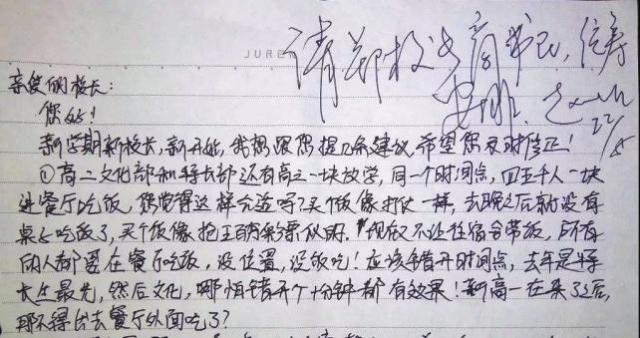 JURE
请郑校长、高书记、
安排。
22/8
亲爱的校长：
您好！
新学期新校长，新开始，我想跟您提几条建议，希望您及时修正！
①高二文化部和特长部还有高三一块放学，同一个时间点，四五千人一块
进餐厅吃饭，您觉得这样合适吗？买个饭像打仗一样，去晚之后就没有
桌子吃饭了，买个饭像抢五百万彩票似的。现在不让往宿舍带饭，所有
的人都要在餐厅吃饭，没位置，没饭吃！应该错开时间点，去年是特
长生最先，然后文化，哪怕错开个十分钟都有效果！新高一在来了之后，
那不得出去餐厅外面吃了？